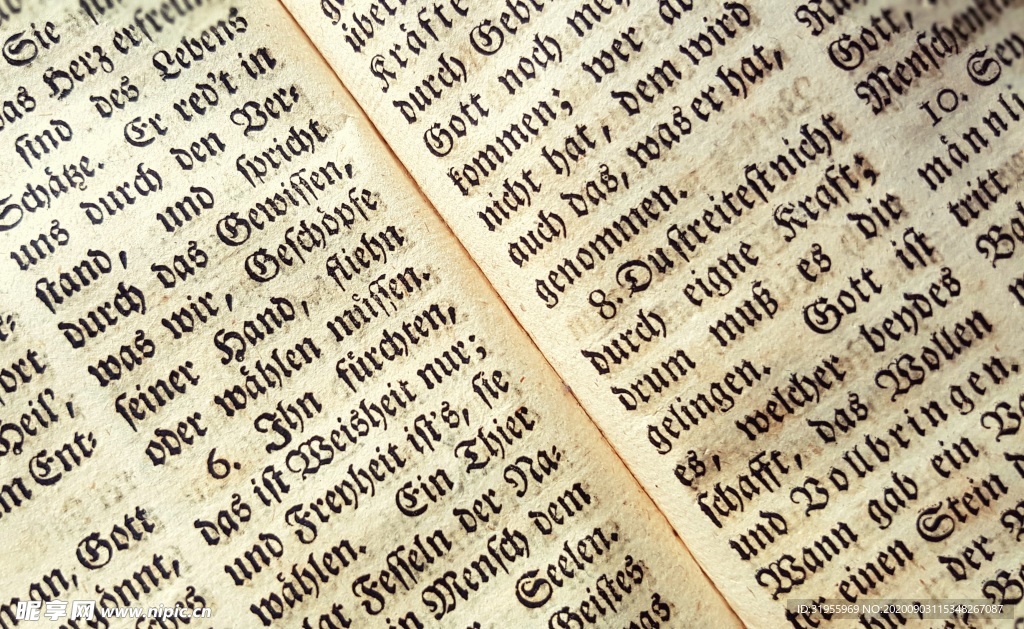 Sie
das Herz erfreuen
sind des Lebens
Schätze. Er red't in
uns durch den Ver-
stand, und spricht
durch das Gewissen,
was wir, Geschöpfe
seiner Hand, fliehn
oder wählen müssen.
6. Ihn fürchten,
das ist Weisheit nur;
und Freyheit ist's, sie
wählen. Ein Thier
hat Fesseln der Na-
Mensch dem
Seelen.
Geistes
ort
Heil,
Ent-
Gott
könnt,
Kräfte
durch Gebe
Gott noch meh
kommen; wer ab
nicht hat, dem wird
auch das, was er hat,
genommen.
8. Du streitest nicht
durch eigne Kraft;
drum muß es die
gelingen. Gott ist
es, welcher beydes
schafft, das Wollen
und Vollbringen.
Wann gab ein
er einen Stein
der
Gott,
Menschen
10.
männl
tritt
昵享网 www.nipic.cn
ID:31955969 NO:20200903115348267087